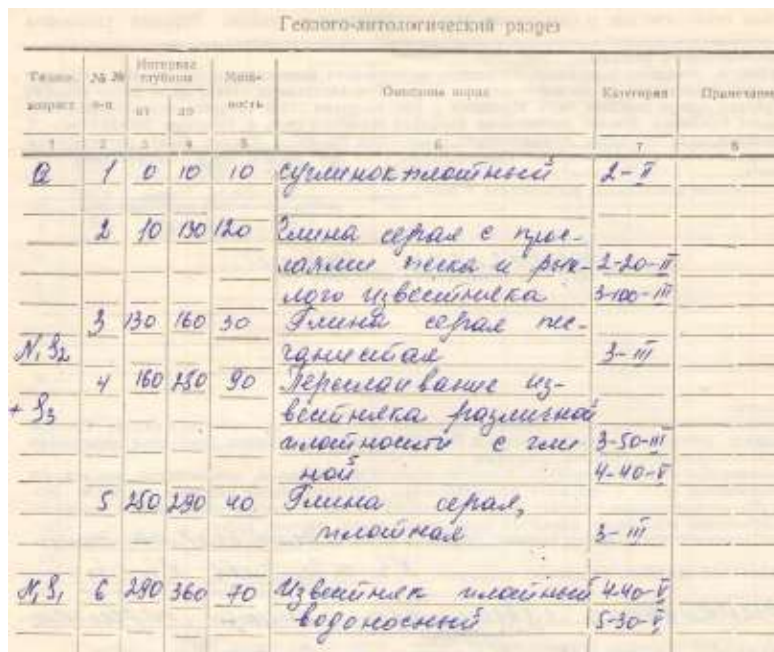 Геолого-литологический разрез
Геолог. возраст № № п-п Интервал глубины от до Мощность Описание пород Категория Примечание
1 2 3 4 5 6 7 8
Q 1 0 10 10 суглинок плотный 2-II
2 10 130 120 Глина серая с прос-
лаями песка и рых- 2-20-II
лого известняка 3-100-III
3 130 160 30 Глина серая пес-
N₁S₂ чанистая 3-III
4 160 250 90 Переслаивание из-
+S₃ вестняка различной
плотности с гли 3-50-III
ной 4-40-V
5 250 290 40 Глина серая,
плотная 3-III
N₁S₁ 6 290 360 70 Известняк плотный 4-40-V
водоносный 5-30-V